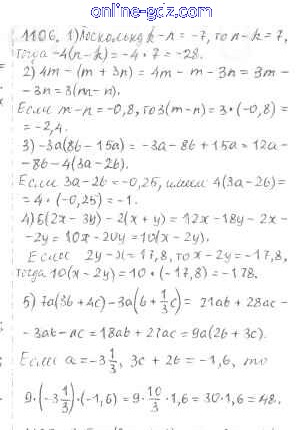 online-gdz.com
1106. 1) Поскольку k-n = -7, то n-k = 7,
тогда -4(n-k) = -4·7 = -28.
2) 4m-(m+3n) = 4m-m-3n = 3m-
-3n = 3(m-n).
Если m-n = -0,8, то 3(m-n) = 3·(-0,8) =
= -2,4.
3) -3a(8b-15a) = -3a-8b+15a = 12a-
-8b-4(3a-2b).
Если 3a-2b = -0,25, имеем 4(3a-2b) =
= 4·(-0,25) = -1.
4) 6(2x-3y)-2(x+y) = 12x-18y-2x-
-2y = 10x-20y = 10(x-2y).
Если 2y-x = 17,8, то x-2y = -17,8,
тогда 10(x-2y) = 10·(-17,8) = -178.
5) 7a(3b+4c)-3a(b+1/3c) = 21ab+28ac-
-3ab-ac = 18ab+27ac = 9a(2b+3c).
Если a = -3 1/3, 3c+2b = -1,6, то
9·(-3 1/3)·(-1,6) = 9·10/3·1,6 = 30·1,6 = 48.